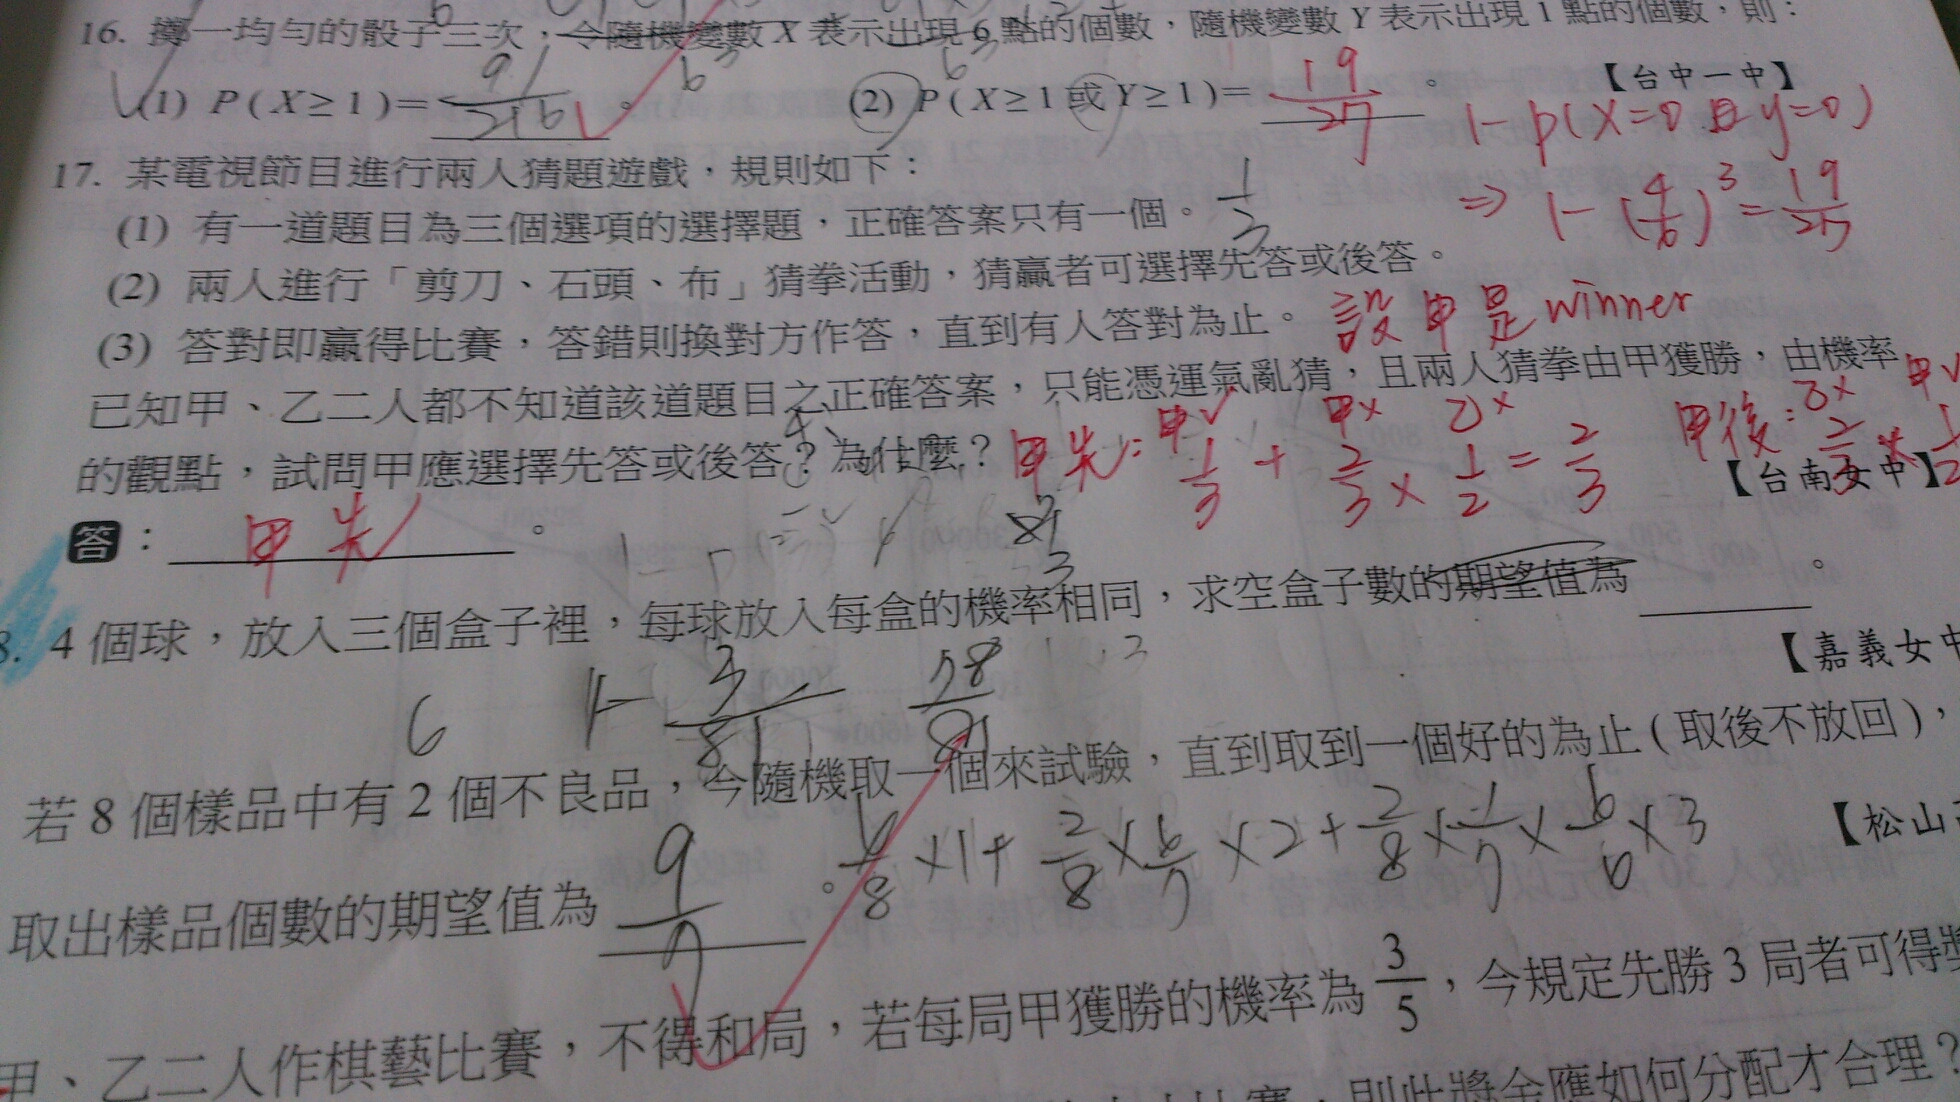 16. 擲一均勻的骰子三次，令隨機變數 X 表示出現 6 點的個數，隨機變數 Y 表示出現 1 點的個數，則：
(1) P(X≥1)= 91/216 。 (2) P(X≥1 或 Y≥1)= 19/27 。 【台中一中】
1-P(X=0 且 y=0)
⇒ 1-(4/6)³=19/27
17. 某電視節目進行兩人猜題遊戲，規則如下：
(1) 有一道題目為三個選項的選擇題，正確答案只有一個。 1/3
(2) 兩人進行「剪刀、石頭、布」猜拳活動，猜贏者可選擇先答或後答。
(3) 答對即贏得比賽，答錯則換對方作答，直到有人答對為止。 設甲是winner
已知甲、乙二人都不知道該道題目之正確答案，只能憑運氣亂猜，且兩人猜拳由甲獲勝，由機率
的觀點，試問甲應選擇先答或後答？為什麼？ 【台南女中】
甲✓ 甲× 乙× 乙× 甲✓
甲先：1/3 + 2/3 × 1/2 = 2/3 甲後：2/3 × 1/2
答： 甲先 。
8. 4 個球，放入三個盒子裡，每球放入每盒的機率相同，求空盒子數的期望值為 。
【嘉義女中
6 1- 3/81 78/81
若 8 個樣品中有 2 個不良品，今隨機取一個來試驗，直到取到一個好的為止(取後不放回)，
【松山
取出樣品個數的期望值為 9/7 。 6/8 ×1+ 2/8 × 6/7 ×2+ 2/8 × 1/7 × 6/6 ×3
甲、乙二人作棋藝比賽，不得和局，若每局甲獲勝的機率為 3/5，今規定先勝 3 局者可得獎
則此獎金應如何分配才合理？